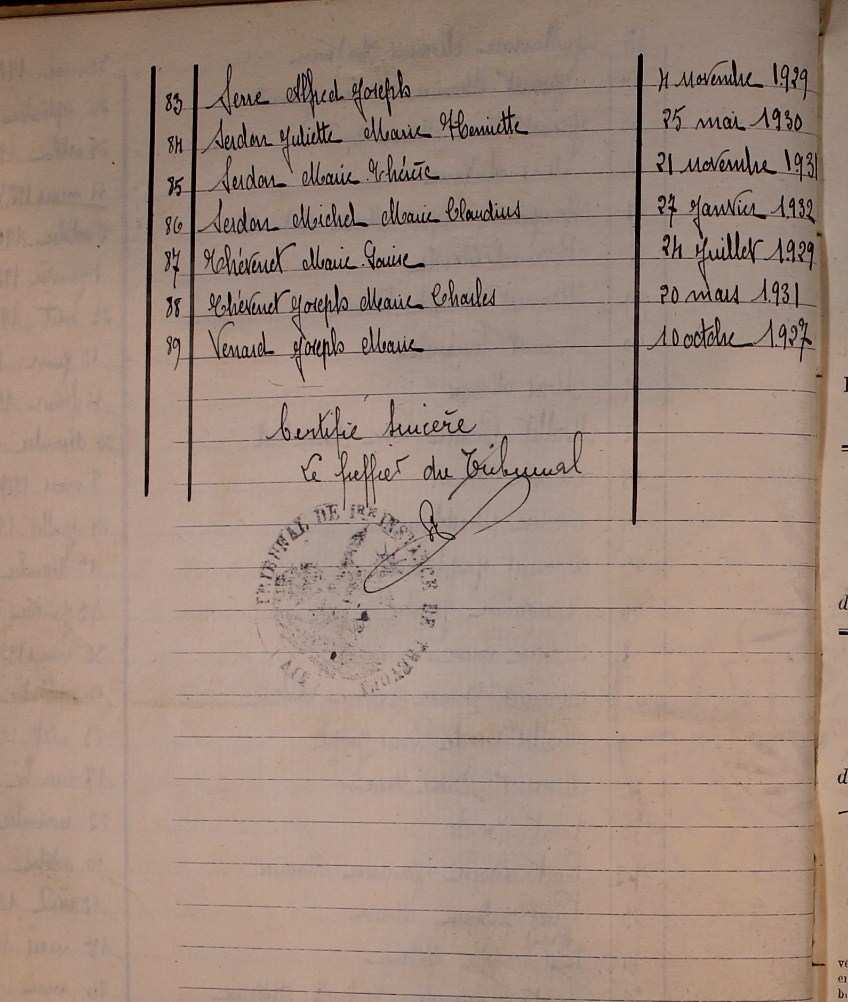 83 Serre Alfred Joseph 4 novembre 1929
84 Serdon Juliette Marie Henriette 25 mai 1930
85 Serdon Marie Thérèse 21 novembre 1931
86 Serdon Michel Marie Claudius 27 Janvier 1932
87 Thévenet Marie Louise 24 Juillet 1929
88 Thévenet Joseph Marie Charles 20 mars 1931
89 Venard Joseph Marie 10 octobre 1927
Certifié Sincère
Le Greffier du Tribunal
TRIBUNAL DE 1RE INSTANCE DE TREVOUX (AIN)